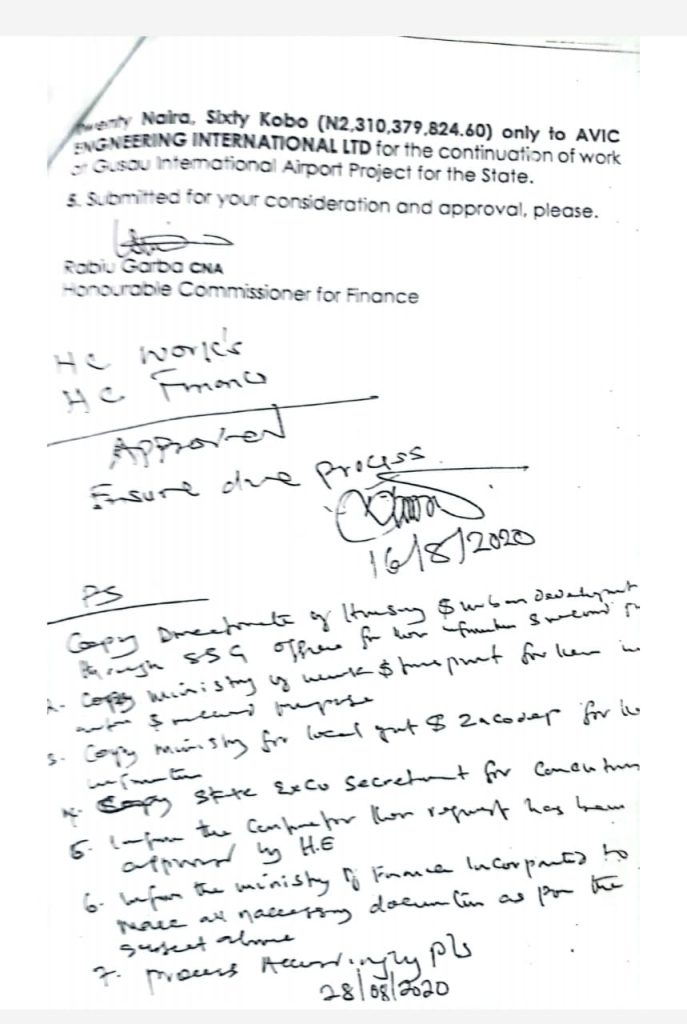 Twenty Naira, Sixty Kobo (N2,310,379,824.60) only to AVIC
ENGNEERING INTERNATIONAL LTD for the continuation of work
at Gusau International Airport Project for the State.
5. Submitted for your consideration and approval, please.
Rabiu Garba CNA
Honourable Commissioner for Finance
HC Work's
HC Finance
Approved
Ensure due process
16/8/2020
PS
Copy Directorate of Housing $ urban Development
through SSG office for $ record
2. Copy ministry of work $ transport for
$ record purpose
3. Copy ministry for local govt $ Zacodep for
information
4. Copy State ExCo Secretariat for
5. Inform the Contractor request has been
approved by H.E
6. Inform the ministry of Finance Incorporated to
make all naccessary as per the
subject above
7. process Accordingly pls
28/08/2020